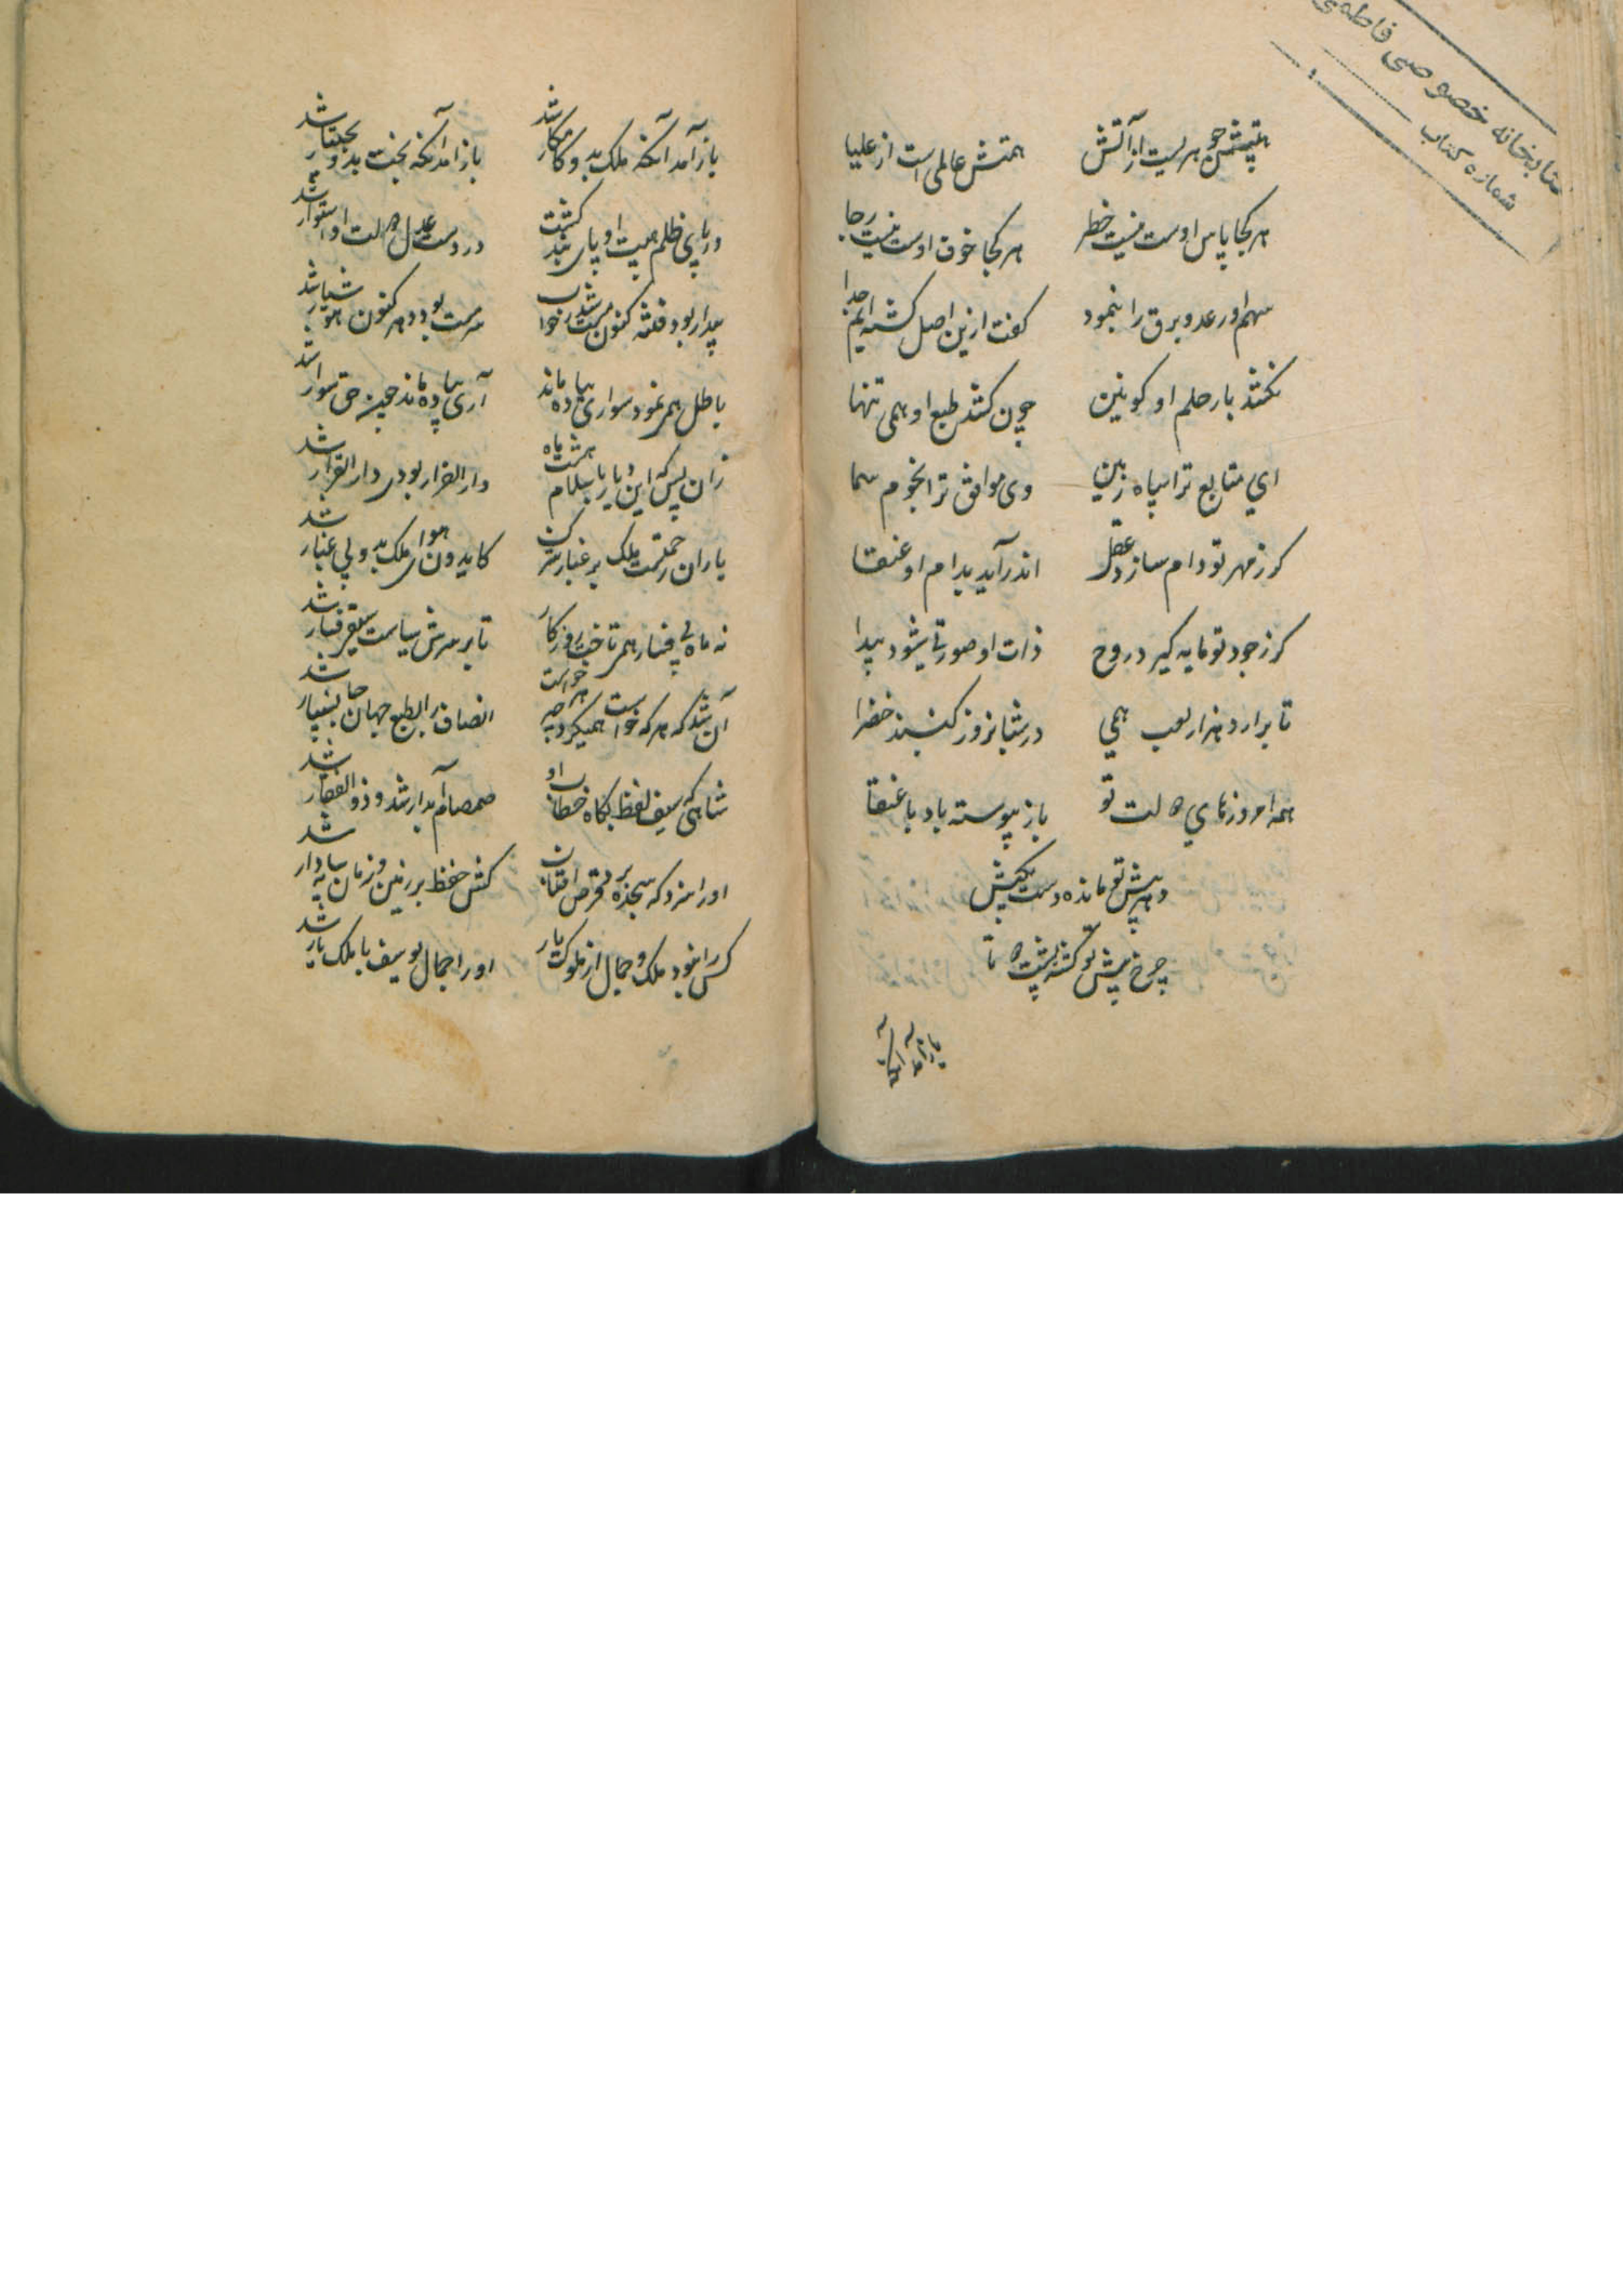 کتابخانه خصوصی فاطمی
شماره کتاب
هیبتش جوهریست از آتش همتش عالمی است از علیا
هر کجا پاس اوست نیست خطر هر کجا خوف اوست نیست رجا
سهم او رعد و برق را بنمود گفت ازین اصل گشته‌ایم جدا
نکشد بار حلم او کونین چون کشد طبع او همی تنها
ای متابع ترا سپاه زمین وی موافق ترا نجوم سما
گر ز مهر تو دام سازد عقل اندر آید بدام او عنقا
گر ز جود تو مایه گیرد روح ذات او صورتی شود پیدا
تا برارد هزار لعب همی در شبانروز گنبد خضرا
همه امروزهای دولت تو باز پیوسته باد با
دهر پیش تو مانده دست بکش
چرخ پیش تو گشته پشت دوتا
باز آمد آنکه
باز آمد آنکه ملک بدو کامکار شد باز آمد آنکه بخت بدو بختیار شد
در پای ظلم هیبت او پای بند گشت در دست عدل دولت او استوار شد
بیدار بود فتنه کنون مست خواب شد سرمست بود دهر کنون هوشیار شد
باطل همی نمود سواری پیاده ماند آری پیاده ماند چو حق سوار شد
زان پس که این دیار باسلام هشت ماه دار الفرار بودی دار القرار شد
باران رحمتست ملک بر غبار کین کایدون هوای ملک بدو بی غبار شد
نه ماه بی فسار همی تاخت روزگار تا بر سرش سیاست سلطان فسار شد
آن شد که هر که خواست همیکرد هر چه خواست انصاف را بطبع جهان جان‌سپار شد
شاهی که سیف لفظ بگاه خطاب او صمصام آبدار شد و ذو الفقار شد
او را سزد که سجده برد قرص آفتاب کش حفظ بر زمین و زمان سایه‌دار شد
کس را نبود ملک و جمال از ملوک یار او را جمال یوسف با ملک یار شد